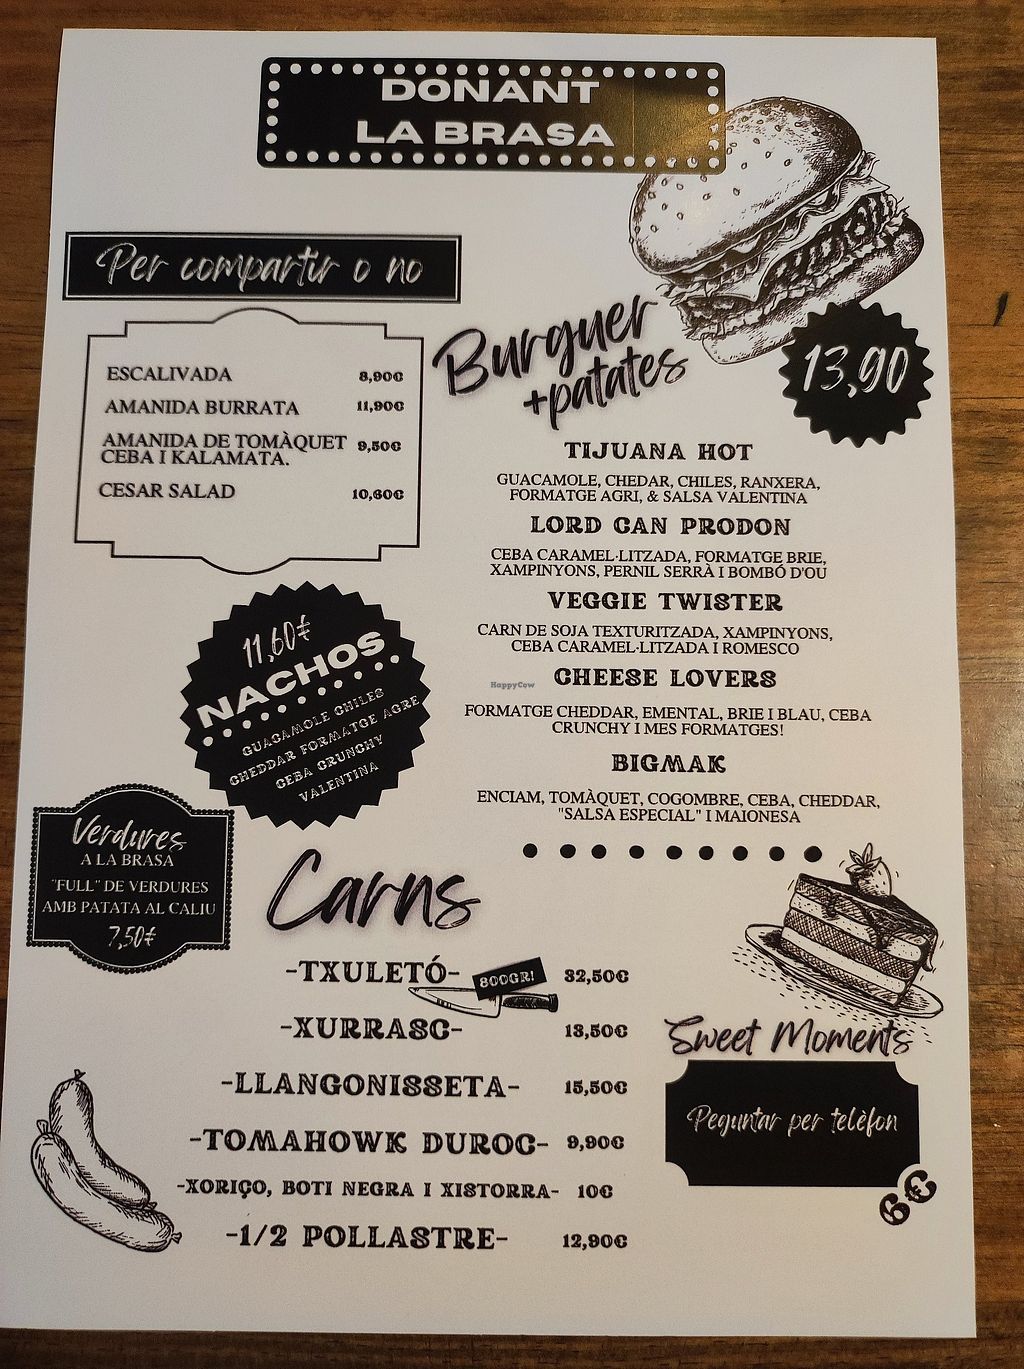 DONANT
LA BRASA
Per compartir o no
ESCALIVADA 8,90€
AMANIDA BURRATA 11,90€
AMANIDA DE TOMÀQUET 9,50€
CEBA I KALAMATA.
CESAR SALAD 10,60€
Burguer
+patates
13,90
TIJUANA HOT
GUACAMOLE, CHEDAR, CHILES, RANXERA,
FORMATGE AGRI, & SALSA VALENTINA
LORD CAN PRODON
CEBA CARAMEL·LITZADA, FORMATGE BRIE,
XAMPINYONS, PERNIL SERRÀ I BOMBÓ D'OU
VEGGIE TWISTER
CARN DE SOJA TEXTURITZADA, XAMPINYONS,
CEBA CARAMEL·LITZADA I ROMESCO
HappyCow
CHEESE LOVERS
FORMATGE CHEDDAR, EMENTAL, BRIE I BLAU, CEBA
CRUNCHY I MES FORMATGES!
BIGMAK
ENCIAM, TOMÀQUET, COGOMBRE, CEBA, CHEDDAR,
"SALSA ESPECIAL" I MAIONESA
11,60€
NACHOS
GUACAMOLE CHILES
CHEDDAR FORMATGE AGRE
CEBA CRUNCHY
VALENTINA
Verdures
A LA BRASA
"FULL" DE VERDURES
AMB PATATA AL CALIU
7,50€
Carns
-TXULETÓ- 800GR! 32,50€
-XURRASC- 13,50€
-LLANGONISSETA- 15,50€
-TOMAHOWK DUROC- 9,90€
-XORIÇO, BOTI NEGRA I XISTORRA- 10€
-1/2 POLLASTRE- 12,90€
Sweet Moments
Peguntar per telèfon
6€